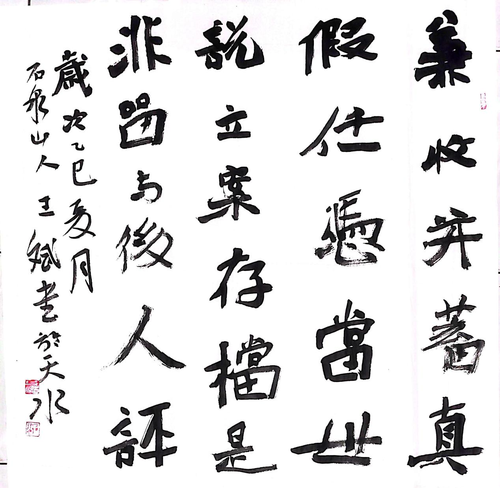 兼收并蓄真
假任憑當世
說立案存檔是
非留与後人評
歲次乙巳夏月
石泉山人王斌書於天水